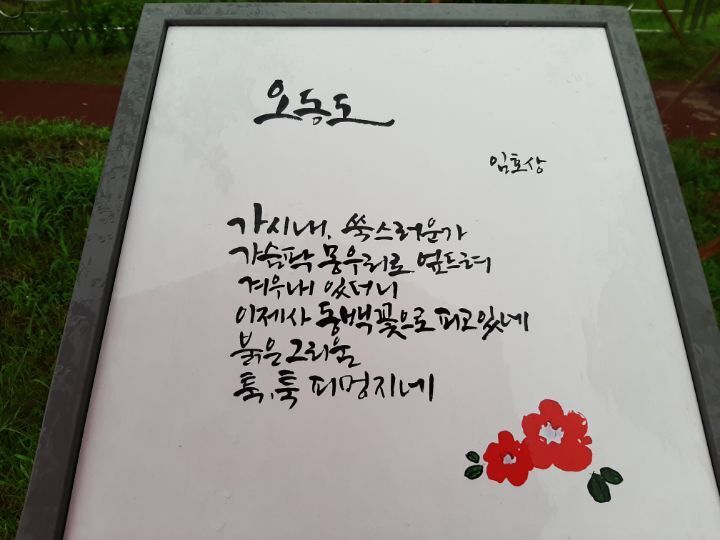 오동도
임호상
가시내, 쑥스러운가
가슴팍 몽우리로 엎드려
겨우내 있더니
이제사 동백꽃으로 피고있네
붉은 그리움
툭, 툭 피멍지네